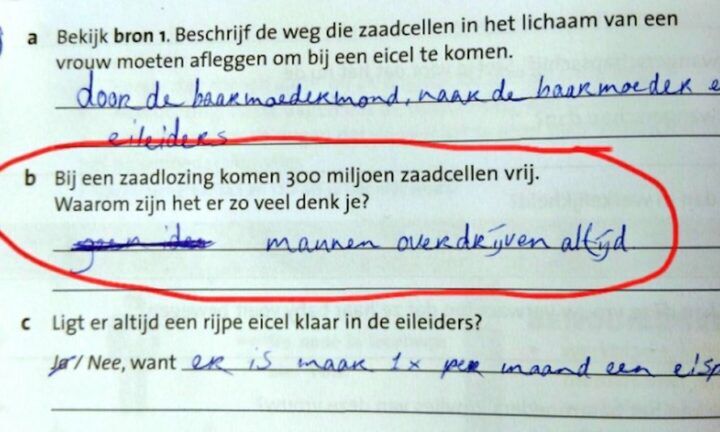 a Bekijk bron 1. Beschrijf de weg die zaadcellen in het lichaam van een
vrouw moeten afleggen om bij een eicel te komen.
door de baarmoedermond, naar de baarmoeder e
eileiders
b Bij een zaadlozing komen 300 miljoen zaadcellen vrij.
Waarom zijn het er zo veel denk je?
geen idee mannen overdrijven altijd.
c Ligt er altijd een rijpe eicel klaar in de eileiders?
Ja / Nee, want er is maar 1x per maand een eisp